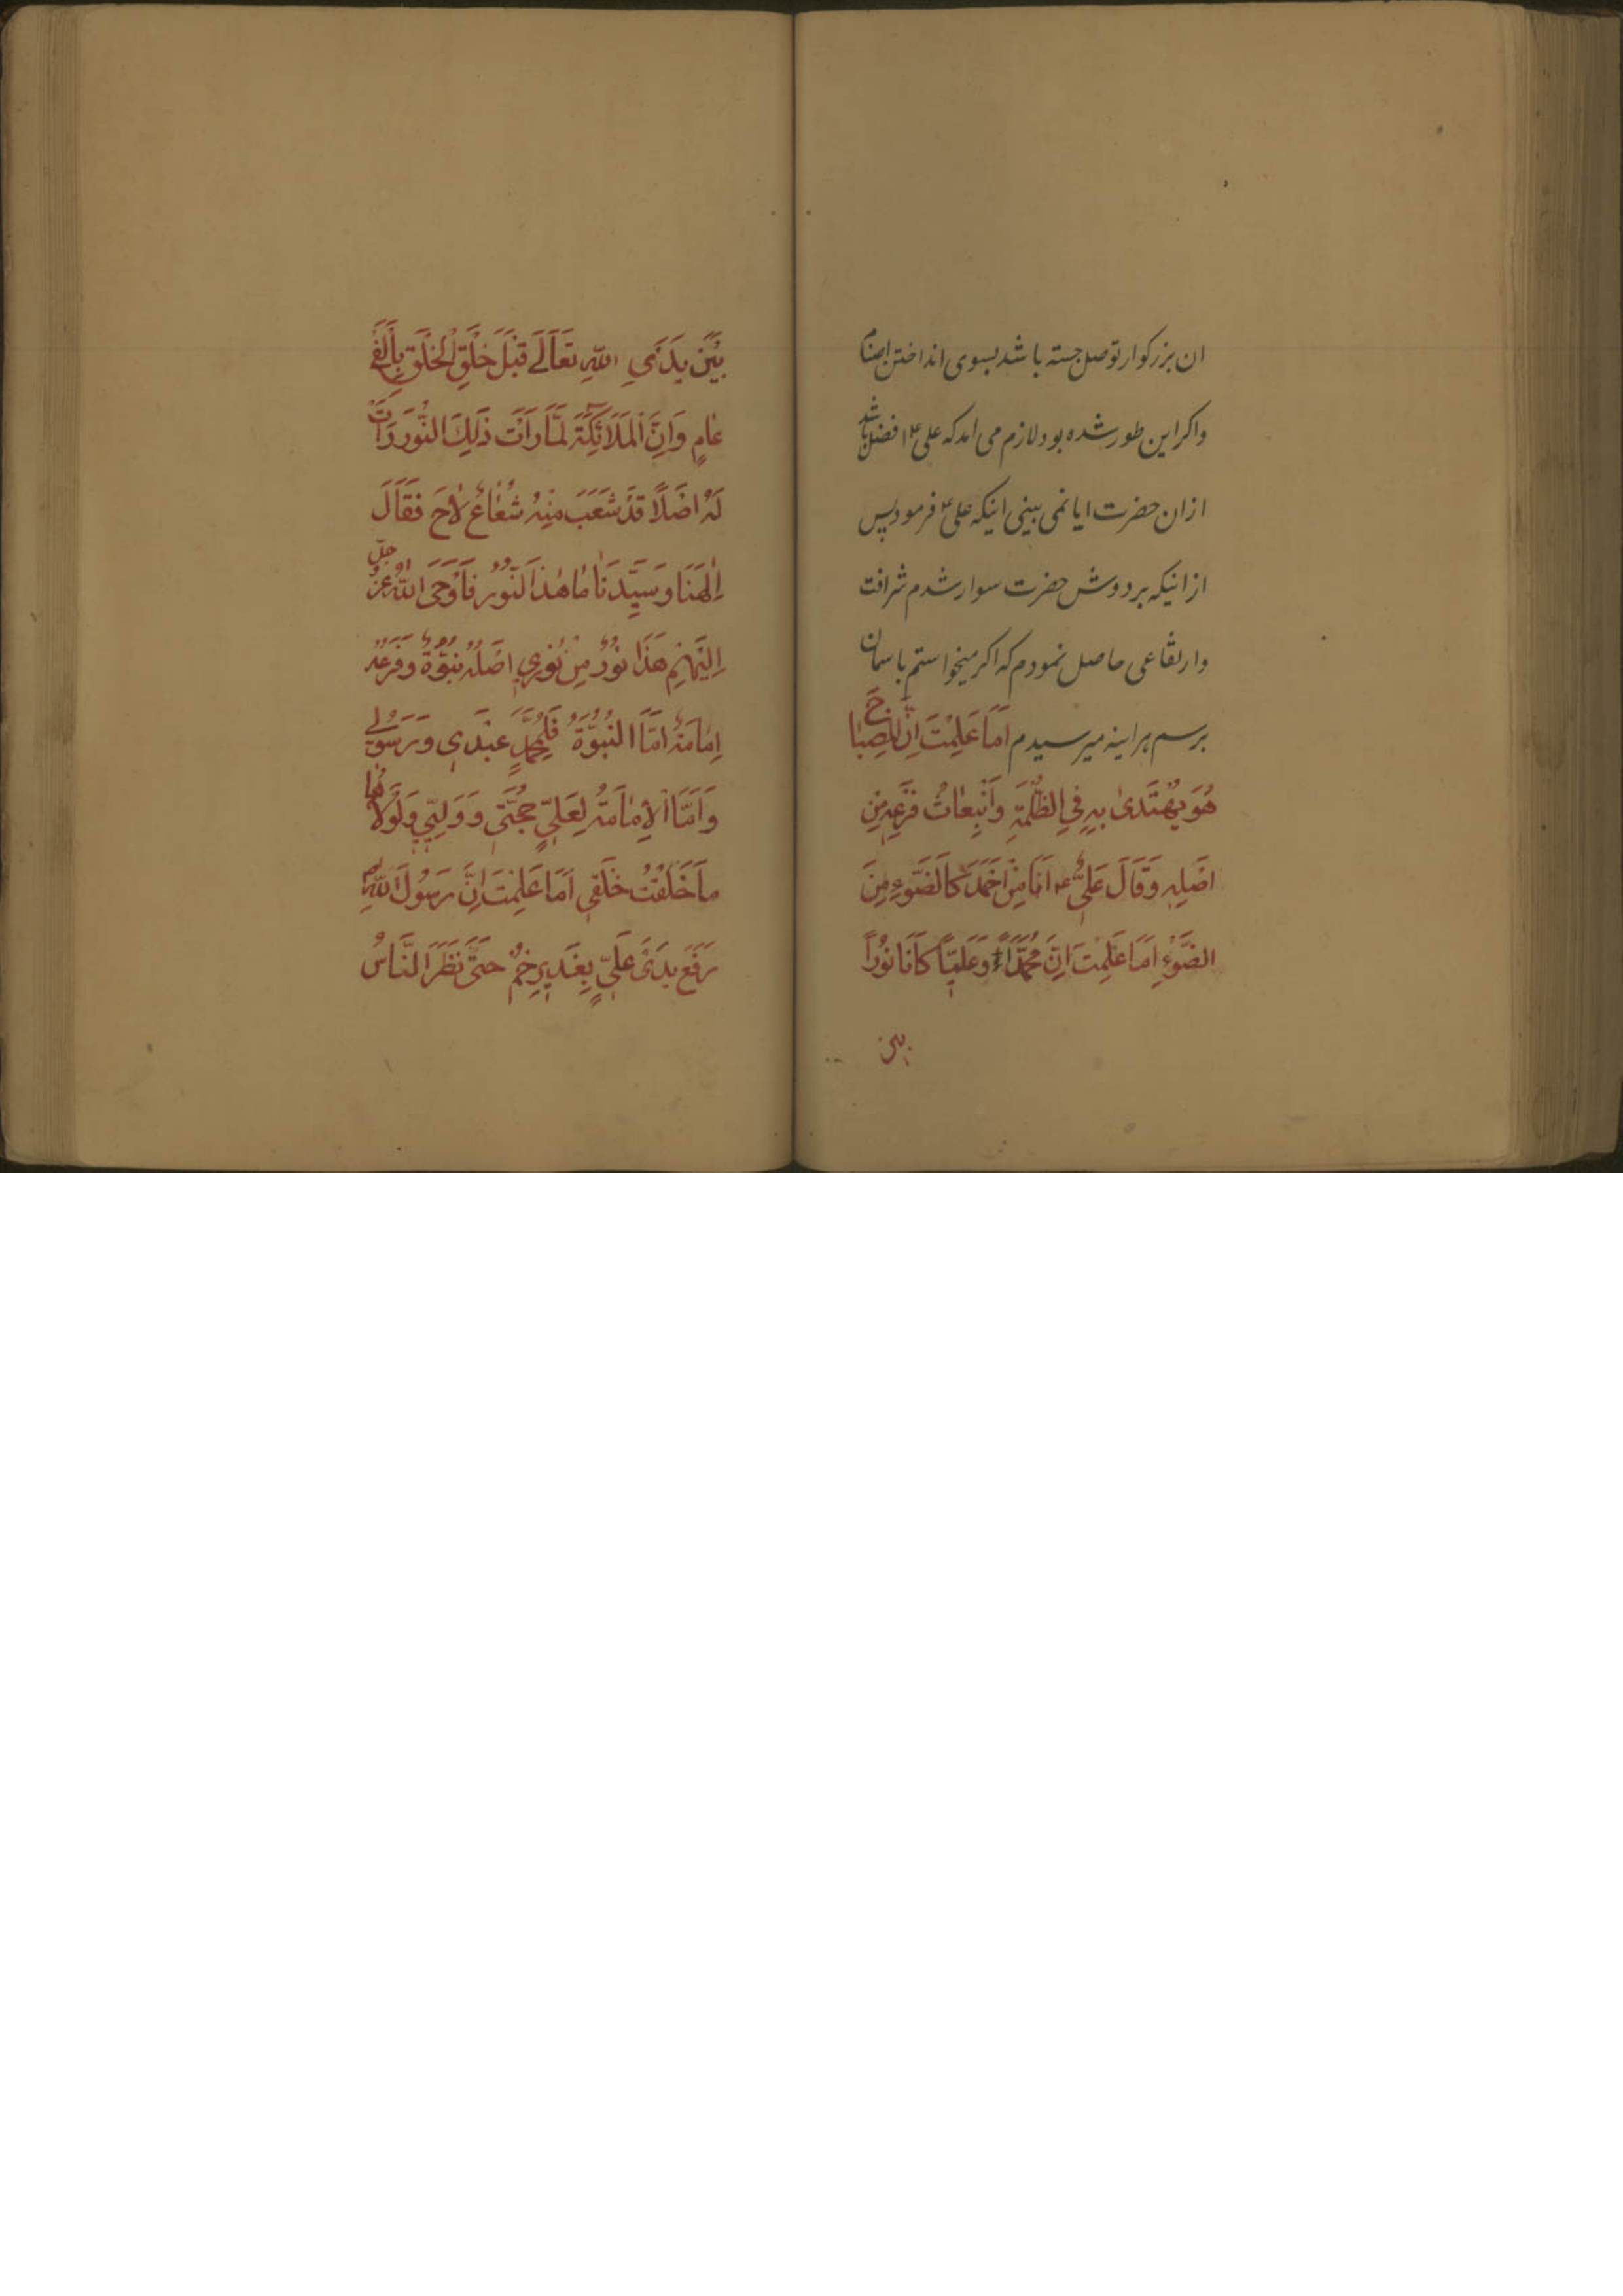 ان بزركوار توصل جسته باشد بسوی انداختن اصنام
واكر این طور شده بود لازم می امد که علی ع افضل باشد
ازان حضرت ایا نمی بینی اینکه علی ع فرمود پس
از انیکه بر دوش حضرت سوار شدم شرافت
وارتفاعی حاصل نمودم که اکر میخواستم باسمان
برسم هراینه میرسیدم اَمَا عَلِمْتَ اِنَّ الْمِصْبَاحَ
هُوَ يُهْتَدىٰ بِهِ فِي الظُّلْمَةِ وَانْبِعَاثُ فَرْعِهِ مِنْ
اَصْلِهِ وَقَالَ عَلِيٌّ ع اَنَا مِنْ اَحْمَدَ كَالضَّوْءِ مِنَ
الضَّوْءِ اَمَا عَلِمْتَ اِنَّ مُحَمَّدًا وَعَلِيًّا كَانَا نُورًا
بين
بَيْنَ يَدَيِ اللّٰهِ تَعَالَى قَبْلَ خَلْقِ الْخَلْقِ بِاَلْفَيْ
عَامٍ وَاِنَّ الْمَلَائِكَةَ لَمَّا رَاَتْ ذٰلِكَ النُّورَ رَاَتْ
لَهُ اَصْلًا قَدْ شَعَبَ مِنْهُ شُعَاعٌ لَاحَ فَقَالَ
اِلٰهَنَا وَسَيِّدَنَا مَا هٰذَا النُّورُ فَاَوْحَى اللّٰهُ عَزَّ وجلّ
اِلَيْهِمْ هٰذَا نُورٌ مِنْ نُورِي اَصْلُهُ نُبُوَّةٌ وَفَرْعُهُ
اِمَامَةٌ اَمَّا النُّبُوَّةُ فَلِمُحَمَّدٍ عَبْدِي وَرَسُولِي
وَاَمَّا الْاِمَامَةُ لِعَلِيٍّ حُجَّتِي وَوَلِيِّي وَلَوْلَاهُمَا
مَا خَلَقْتُ خَلْقِي اَمَا عَلِمْتَ اِنَّ رَسُولَ اللّٰهِ ص
رَفَعَ يَدَيْ عَلِيٍّ بِغَدِيرِ خُمٍّ حَتَّى نَظَرَ النَّاسُ